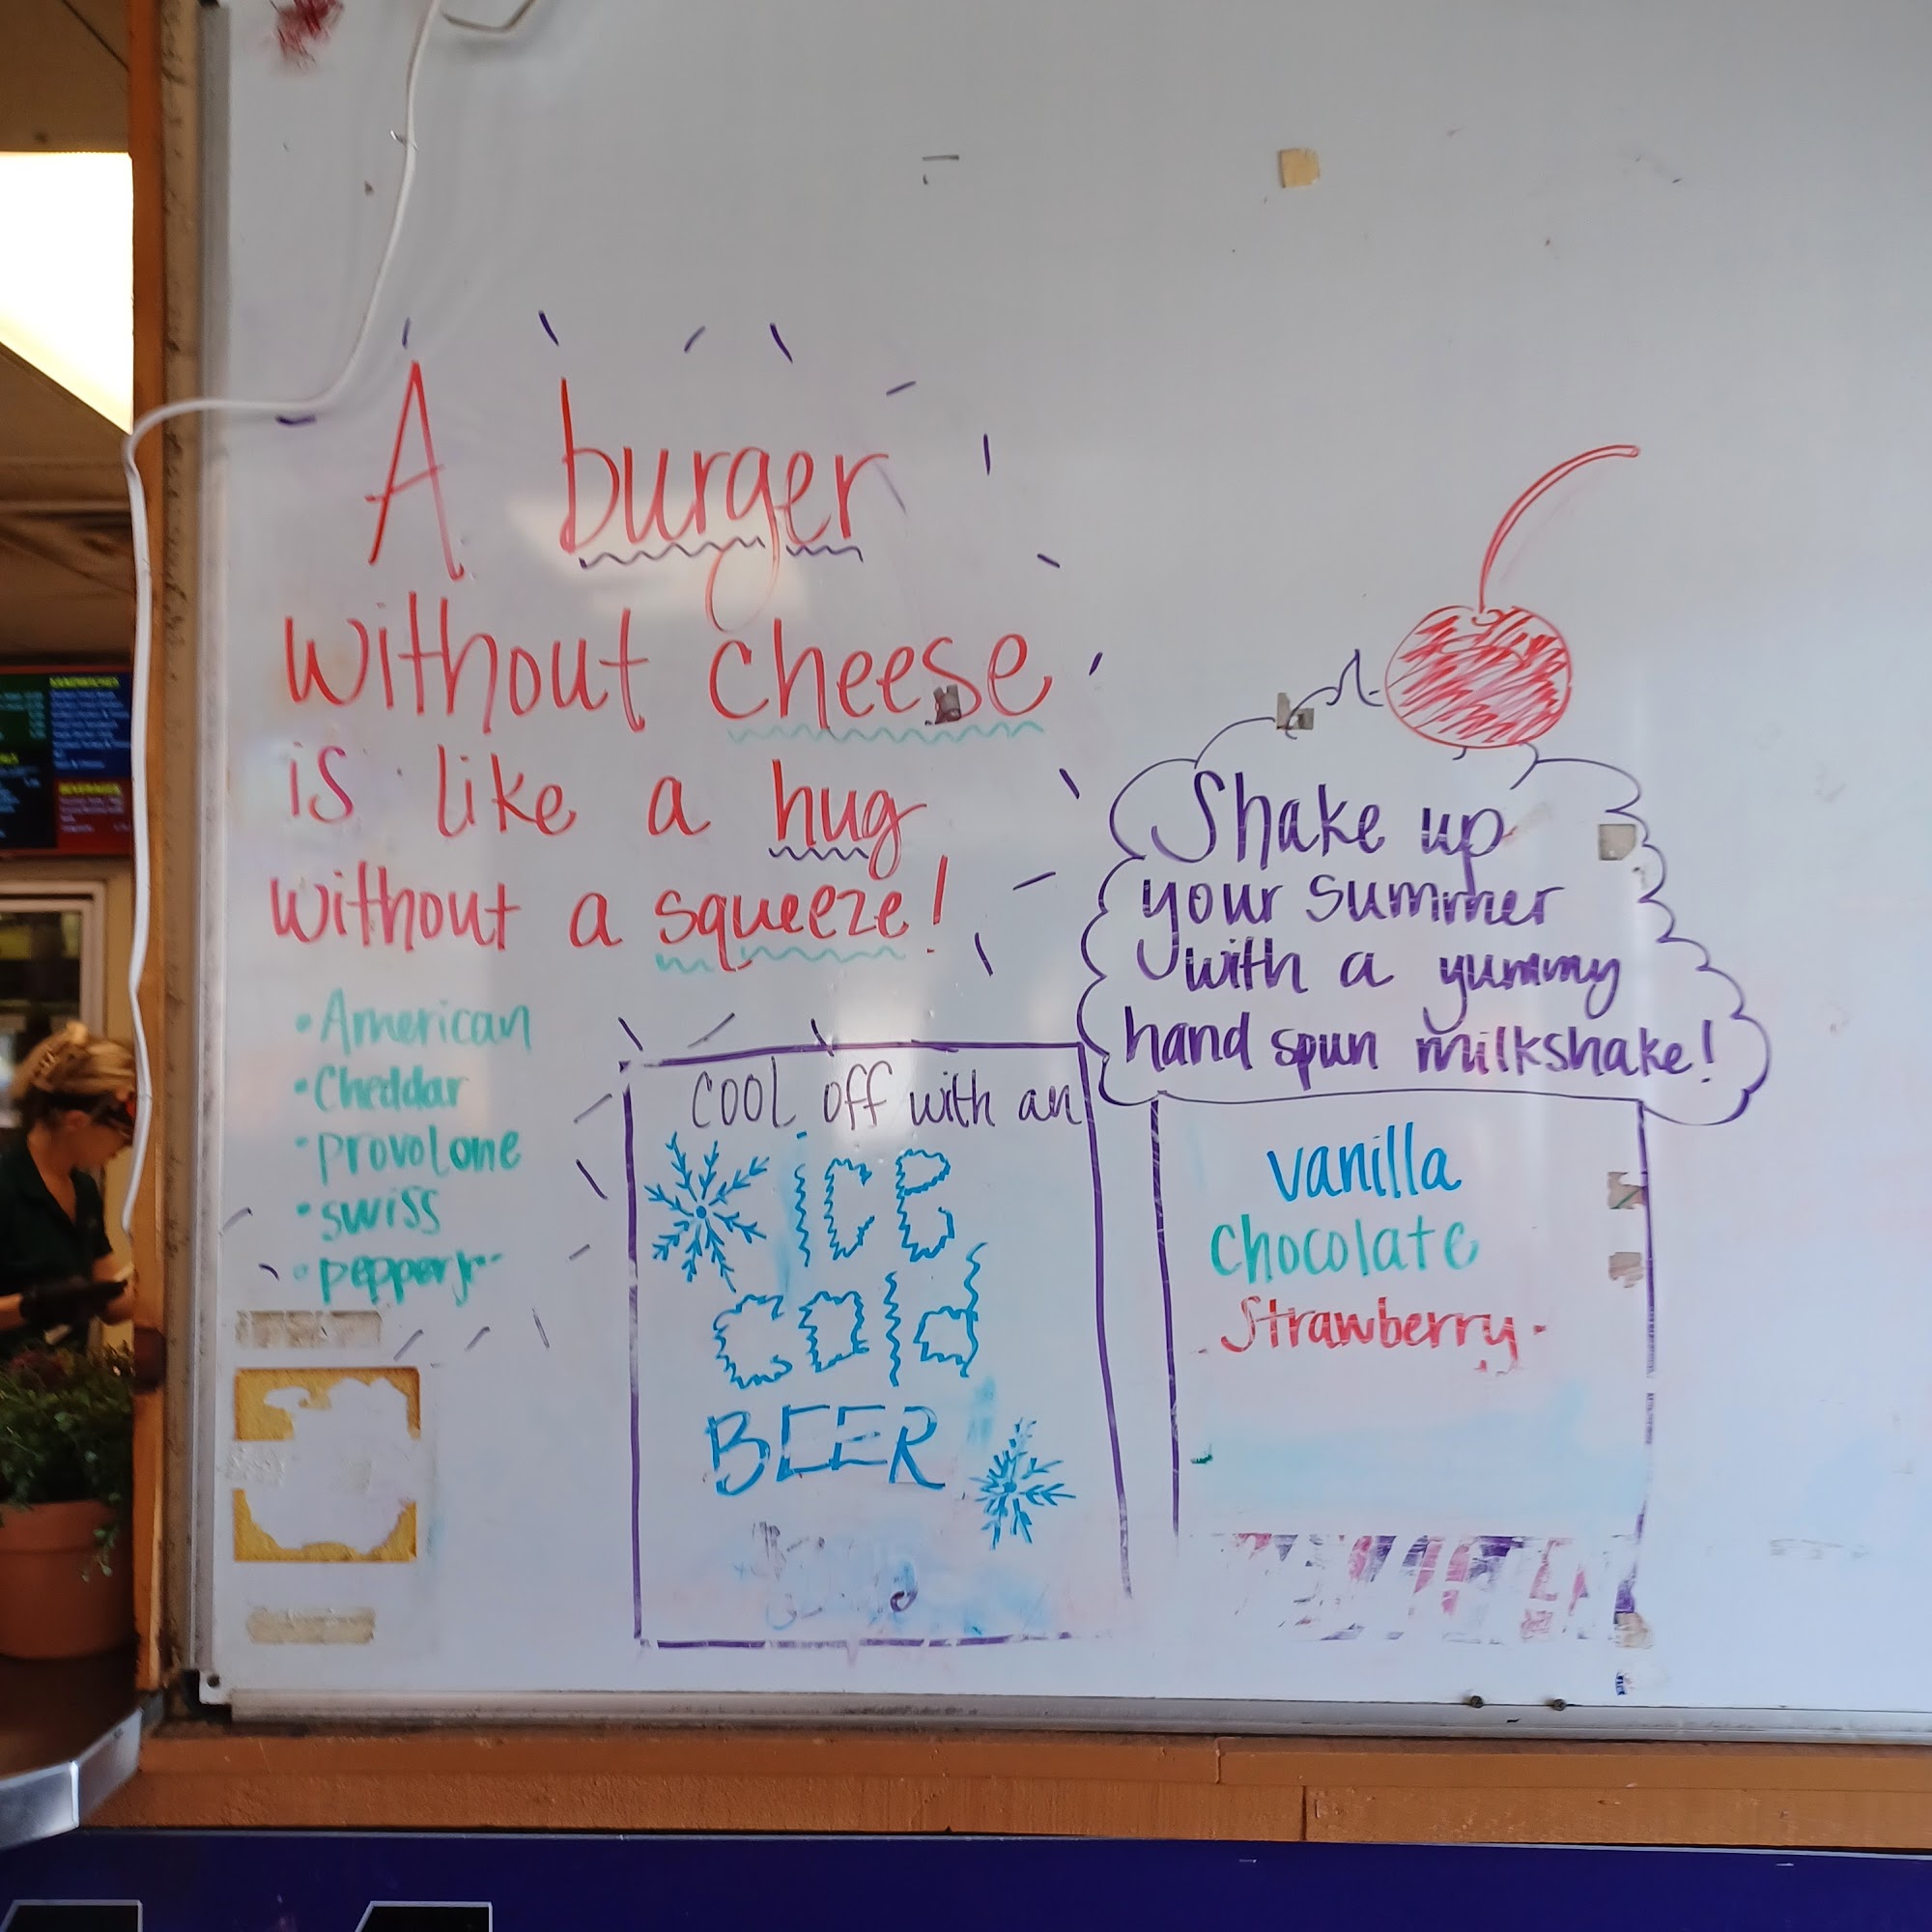 A burger
without cheese
is like a hug
without a squeeze!
• American
• Cheddar
• provolone
• swiss
• pepperj
cool off with an
ICE
Cold
BEER
Shake up
your summer
with a yummy
hand spun milkshake!
vanilla
chocolate
Strawberry